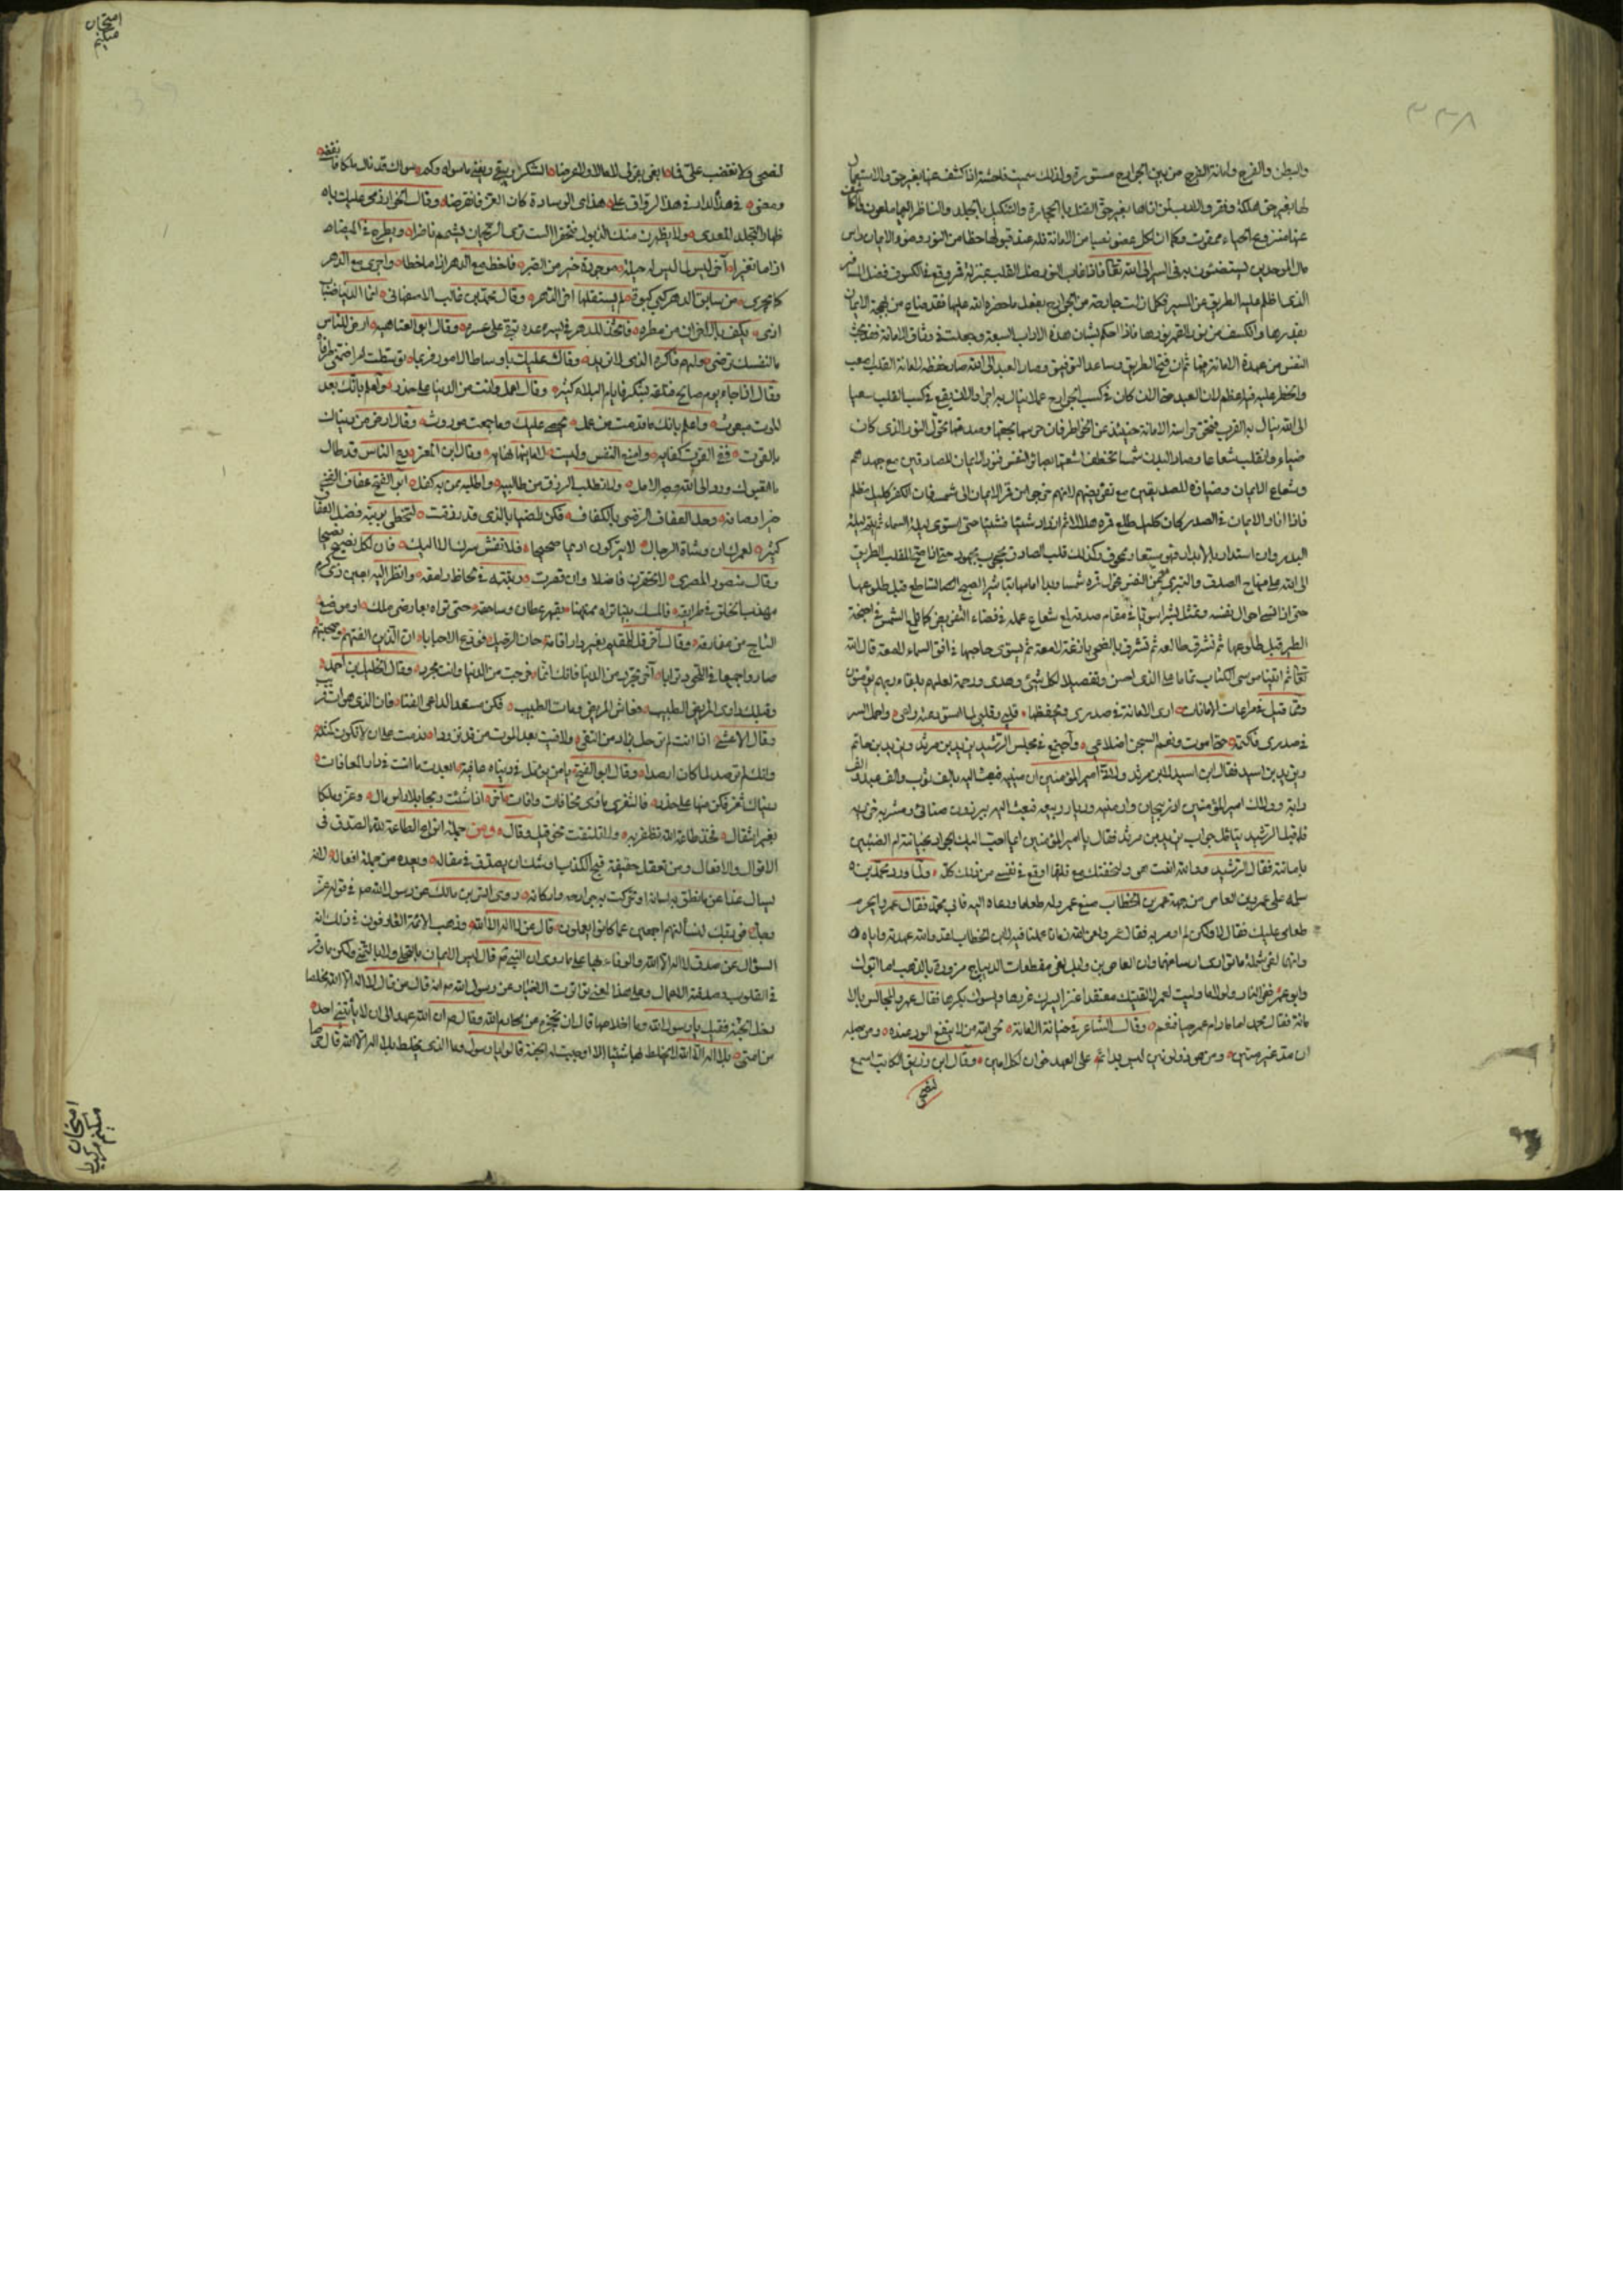 ٣٣٨
والبطن والفرج وامانة الفرج من بين الجوارح مستورة ولذلك سميت فاحشة اذا كشف عنها بغير حق والاستعمال
لها بغير حق هلكة وفقر والادب لمن اتاها بغير حق القتل بالحجارة والتنكيل بالجلد والناظر اليها ملعون
من الامانة عند قبولها حظا من النور وضوء الايمان راس
مال الموحدين ليستضئون به فى السير الى الله تعالى فاذا غاب النور ضل القلب بمنزلة قمر وقع فى الكسوف فضل المسافر
الذى اظلم عليه الطريق عن المسير فكما زلت جارحة من الجوارح بفعل ما حضره الله عليها فقد ضاء من بهجة الايمان
بقدرها وانكسف من نور القمر نورها فاذا احكم لشان هذه الاداب السبعة وجعلت فى وثاق الامانة
النفس من عهدة الامانة فيها ثم ان فتح الطريق وساعد التوفيق وصار العبد الى الله صار حفظه لامانة القلب اصعب
والخطر عليه فيها عظم لان العبد حقا لان كان فى كسب الجوارح عملا ينال به اجرا والان يقع فى كسب القلب سعيا
الى الله ينال به القرب فتحق حراسة الامانة حينئذ عن الخواطر فان حرسها بحقها وصدقها تحول النور الذى كان
ضياء وانقلب شعاعا وصار البدن شمسا تخطف اشعتها بصائر النفس فنور الايمان للصادقين مع جهدهم
وشعاع الايمان وضيائه للصديقين مع تفويضهم لانهم خرجوا من قمر الايمان الى شمسه فبات الكفر كليل مظلم
فاذا انار الايمان فى الصدر كان كليل طلع قمره هلالا ثم ازداد شيئا فشيئا حتى استوى ليلة السماء
البدر وان استدار بالابدار فهو يستعار ومحوق وكذلك قلب الصادق محجوب بجهوده حتى اذا فتح للقلب الطريق
الى الله على منهاج الصدق والتبرى من النفس تحول قمره شمسا وبدا امامها تباشير الصبح الساطع قبل طلوعها
حتى اذا نسى احوال نفسه وتمثل بشرا سويا فى مقام صدقه لمع شعاع عمله فى فضاء التفويض كما تلمع الشمس فى اجنحة
الطير قبل طلوعها ثم تشرق طالعة ثم تشرق بالضحى بازغة لامعة ثم يستوى حاجبها فى افق السماء للمعة قال الله
تعالى ثم اتينا موسى الكتاب تماما على الذى احسن وتفصيلا لكل شئ وهدى ورحمة لعلهم بلقاء ربهم يؤمنون
ومما قيل فى مراعات الامانات ارى الامانة فى صدرى فتحفظها قلبى وقلبى لما استودعته واعى واجعل السر
فى صدرى فاكتمه حتى اموت ونعم السجن اضلاعى واجتمع فى مجلس الرشيد يزيد بن مزيد ويزيد بن حاتم
ويزيد بن اسيد فقال ابن اسيد لابن مزيد ولاك امير المؤمنين ارمينيه فبعثت اليه بالف ثوب والف عبد والف
دابة وولاك امير المؤمنين اذربيجان وارمنيه وديار ربيعه فبعثت اليه ببرذون صنابى ومشربه خزفيه
فلم قبل الرشيد يتامل جواب يزيد بن مزيد فقال يا امير المؤمنين ايما احب اليك الجواد بخيانته ام الضنين
بامانته فقال الرشيد
سلمه على عمرو بن العاص من جهة عمر بن الخطاب صنع عمرو له طعاما ودعاه اليه فابى محمد فقال عمرو اتحرم
طعامى عليك فقال لا ولكن لم اومر به فقال عمرو لعن الله زمانا عملنا فيه لابن الخطاب لقد رايته واباه
وانهما لفى شملة ما توارى ارساغهما وان العاص بن وايل لفى مقطعات الديباج مزورة بالذهب اما ابوك
وابو عمر ففى النار ولولا ما وليت لعمر لالفيتك معتقلا عنزا يسرك غزرها ويسوءك بكرها فقال عمرو المجالس بالا
مانة فقال محمد اما ما دام عمر حيا فنعم وقال الشاعر فى خيانة الامانة نحى الله من لا ينفع الود عنده ومن حبله
ان مد غير متين ومن هو ذو لونين ليس بدائم على العهد خوان لكل امين وقال ابن وزيق الكاتب اسمع
لنصحى
لنصحى ولا تغضب على فما ابغى بقولى لا مالا ولا عرضا الشكر يبقى ويفنى ما سواه وكم سواك قد نال ملكا فانقضى
ومضى فى هذه الدار فى هذا الرواق على هذى الوسادة كان العز فانقرضا وقال الخوارزمى عليك باه
ظهار التجلد للعدى ولا يظهرن منك الذبول فتحقرا الست ترى الريحان يشم ناضرا ويطرح فى الميضاه
اذا ما تغيرا آخر ليس لما ليس له حيلة موجودة خير من الصبر فاخط مع الدهر اذا ما خطا واجرى مع الدهر
كما يجرى من سابق الدهر كبى كبوة لم يستقلها آخر الدهر وقال محمد بن غالب الاصفهانى انما الدنيا
وقال ابو العتاهيه ارض للناس
ما لنفسك ترضى ولهم فاكره الذى لا تريد وقال عليك باوساط الامور فربما توسطت امرا ضمنى طرفا
وقال اذا جاء يوم صالح فتلقه بشكر فايام البلاء كثيره وقال اعمل وانت من الدنيا على حذر واعلم بانك بعد
الموت مبعوث واعلم بانك ما قدمت من عمل يحصى عليك وما جمعت موروث وقال ارض من دنياك
بالقوت ففى القوت كفايه وامنع النفس وليست لامانيها نهايه وقال ابن المعتز دع الناس قد طال
ما اتعبوك ورد الى الله وجه الامل ولا تطلب الرزق من طالبيه واطلبه ممن به كفل ابو الفتح عفاف الفتى
فكن راضيا بالذى قد رزقت لتحظى بويته فضل العفاف
كثير لعمرك ان وشاة الرجال لا يتركون اديما صحيحا فلا تفش سرك الا اليك فان لكل نصيح نصيحا
وقال منصور المصرى لا تحقرن فاضلا وان قصرت وبقيته فى الحاظ رامقه وانظر اليه بعين ذى كرم
مهذب الخلق فى طرايقه فالمسك بينا تراه ممتهنا بفهر عطار وساحقه حتى تراه بعارضى ملك او موضع
التاج من مفارقه وقال آخر قل لمقيم بغير دار اقامة حان الرحيل فودع الاحبابا ان الذين الفتهم وصحبتهم
صاروا جميعا فى اللحود ترابا آخر تجرد من الدنيا فانك انما خرجت من الدنيا وانت مجرد وقال الخليل بن احمد
وقبلك داوى المريض الطبيب فعاش المريض ومات الطبيب فكن مستعدا لداعى الفنا فان الذى هو ات قريب
وقال الاعشى اذا انت لم ترحل بزاد من التقى ولاقيت بعد الموت من قد تزودا ندمت على ان لا تكون كمثله
وانك لم ترصد لما كان ارصدا وقال ابو الفتح يا من يؤمل فى دنياه عافية ابعدت ما انت فى دار المعافات
دنياك ثغر فكن منها على حذر فالثغر ماوى مخافات وافات آخر اذا شئت نجحا بلا راس مال وعز وملكا
بغير انتقال فخذ طاعة الله تظفر به ولا تلتفت نحو قيل وقال ومن جملة انواع الطاعة لله الصدق فى
الاقوال والافعال ومن تعقل حقيقة قبح الكذب اوشك ان يصدق فى مقاله وبعده من جملة افعاله لانه
يسال غدا عن ما نطق به لسانه او تحركت به جوارحه واركانه روى انس بن مالك عن رسول الله صلع فى قوله عز
وجل فوربك لنسألنهم اجمعين عما كانوا يعملون قال عن لا اله الا الله وذهب الائمة العارفون فى ذلك انه
السؤال عن صدق لا اله الا الله والوفاء بها على ما روى ان النبى قال ليس الايمان بالتحلى ولا بالتمنى ولكن ما وقر
فى القلوب وصدقته الاعمال وعلى هذا المعنى تواترت الاخبار عن رسول الله صلع انه قال من قال لا اله الا الله مخلصا
دخل الجنة فقيل يا رسول الله وما اخلاصها قال ان تحجزه من محارم الله وقال ان الله عهد الى ان لا ياتينى احد
من امتى بلا اله الا الله لا يخلط بها شيئا الا اوجبت له الجنة قالوا يا رسول وما الذى يخلط بلا اله الا الله قال